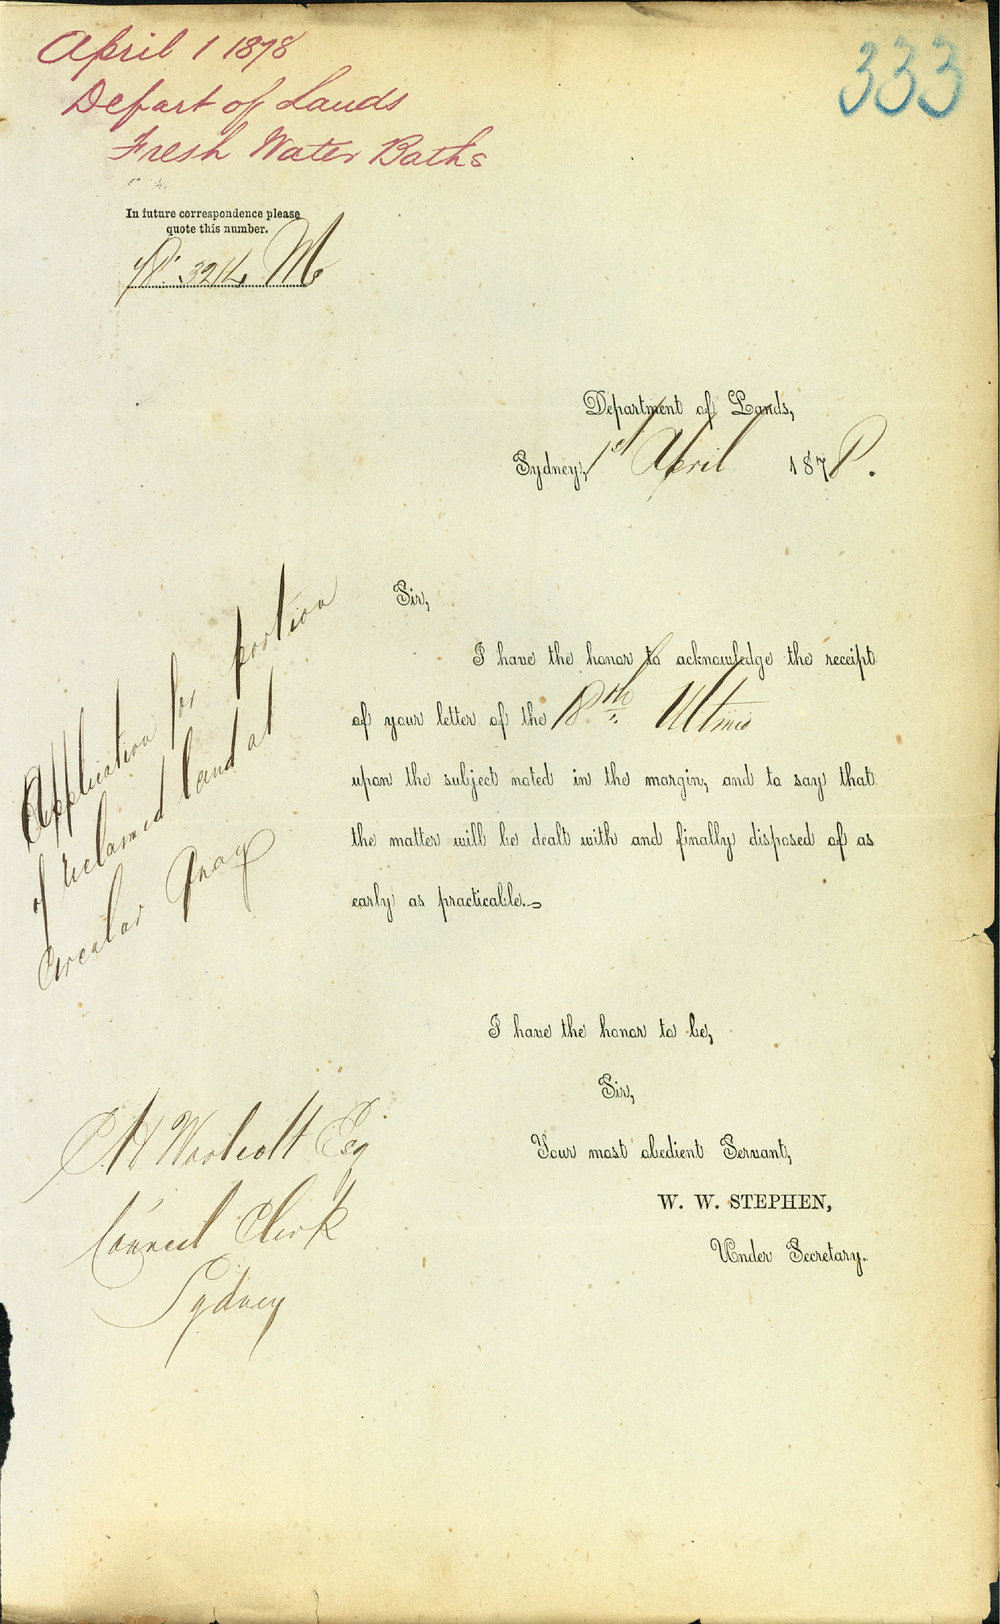 April 1 1878
Depart of Lands
Fresh Water Baths
333
In future correspondence please
quote this number.
78. 3214 M
Department of Lands,
Sydney, 1st April 1878.
Sir,
I have the honor to acknowledge the receipt
of your letter of the 18th Ultimo
upon the subject noted in the margin, and to say that
the matter will be dealt with and finally disposed of as
early as practicable.
Application for portion
of reclaimed land at
Circular Quay
I have the honor to be,
Sir,
Your most obedient Servant,
W. W. STEPHEN,
Under Secretary.
C H Woolcott Esq
Council Clerk
Sydney